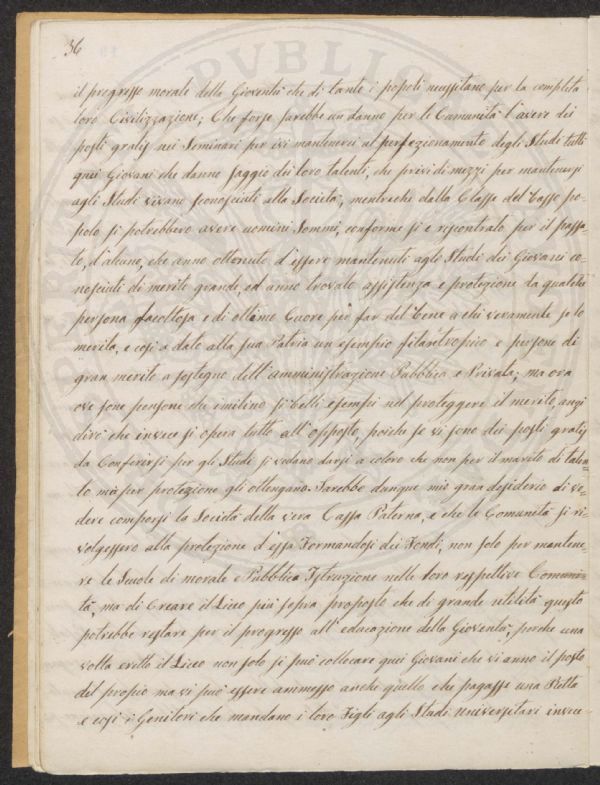 36
il progresso morale della Gioventù che di tante i popoli necessitano per la completa
loro Civilizzazione; Che forse sarebbe un danno per le Comunità l'avere dei
posti gratis nei Seminari per ivi mantenervi al perfezionamento degli Studi tutti
quei Giovani che danno saggio dei loro talenti, che privi di mezzi per mantenersi
agli Studi vivano sconosciuti alla Società, mentreche dalla Classe del basso po-
polo si potrebbero avere uomini Sommi, conforme si è riscontrato per il passa-
to, d'alcuno, che anno ottenuto d'essere mantenuti agli Studi dei Giovani co-
nosciuti di merito grande, ed anno trovato assistenza e protezione da qualche
persona facoltosa e di ottimo Cuore per far del bene a chi veramente se lo
merita, e così a dato alla sua Patria un esempio filantropico e persone di
gran merito a sostegno dell'amministrazione Pubblica e Privata; ma ora
ove sone persone che imitino si belli esempii nel proteggere il merito, anzi
dirò che invece si opera tutto all'opposto, poiche se vi sono dei posti gratis
da Conferirsi per gli Studi si vedano darsi a coloro che non per il merito di talen-
to mà per protezione gli ottengano. Sarebbe dunque mio gran desiderio di ve-
dere comporsi la Società della vera Cassa Paterna, e che le Comunità si ri-
volgessero alla protezione d'essa Formandosi dei Fondi, non solo per mantene-
re le Scuole di morale e Pubblica Istruzione nelle loro respettive Comuni-
tà, ma di Creare il Liceo più sopra proposto che di grande utilità questo
potrebbe restare per il progresso all'educazione della Gioventù, perche una
volta eretto il Liceo non solo si può collocare quei Giovani che vi anno il posto
del propio ma vi può essere ammesso anche quello che pagasse una Retta
e così i Genitori che mandano i loro Figli agli Studi Universitari invece
PVBLICA